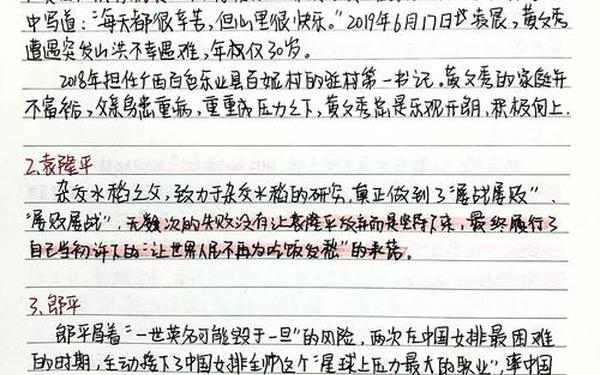 中写道:“每天都很辛苦,但心里很快乐。”2019年6月17日凌晨,黄文秀
遭遇突发山洪不幸遇难,年仅30岁。
2018年担任广西百色乐业县百坭村的驻村第一书记。黄文秀的家庭并
不富裕,父亲身患重病,重重压力之下,黄文秀总是乐观开朗,积极向上.
2.袁隆平
杂交水稻之父,致力于杂交水稻的研究,真正做到了“屡战屡败”、
“屡败屡战”,无数次的失败没有让袁隆平放弃而是坚持下来,最终履行了
自己当初许下的“让世界人民不再为吃饭发愁”的承诺。
3.郎平
郎平冒着“一世英名可能毁于一旦”的风险,两次在中国女排最困难
的时期,主动接下了中国女排主帅这个“星球上压力最大的职业”,率中国